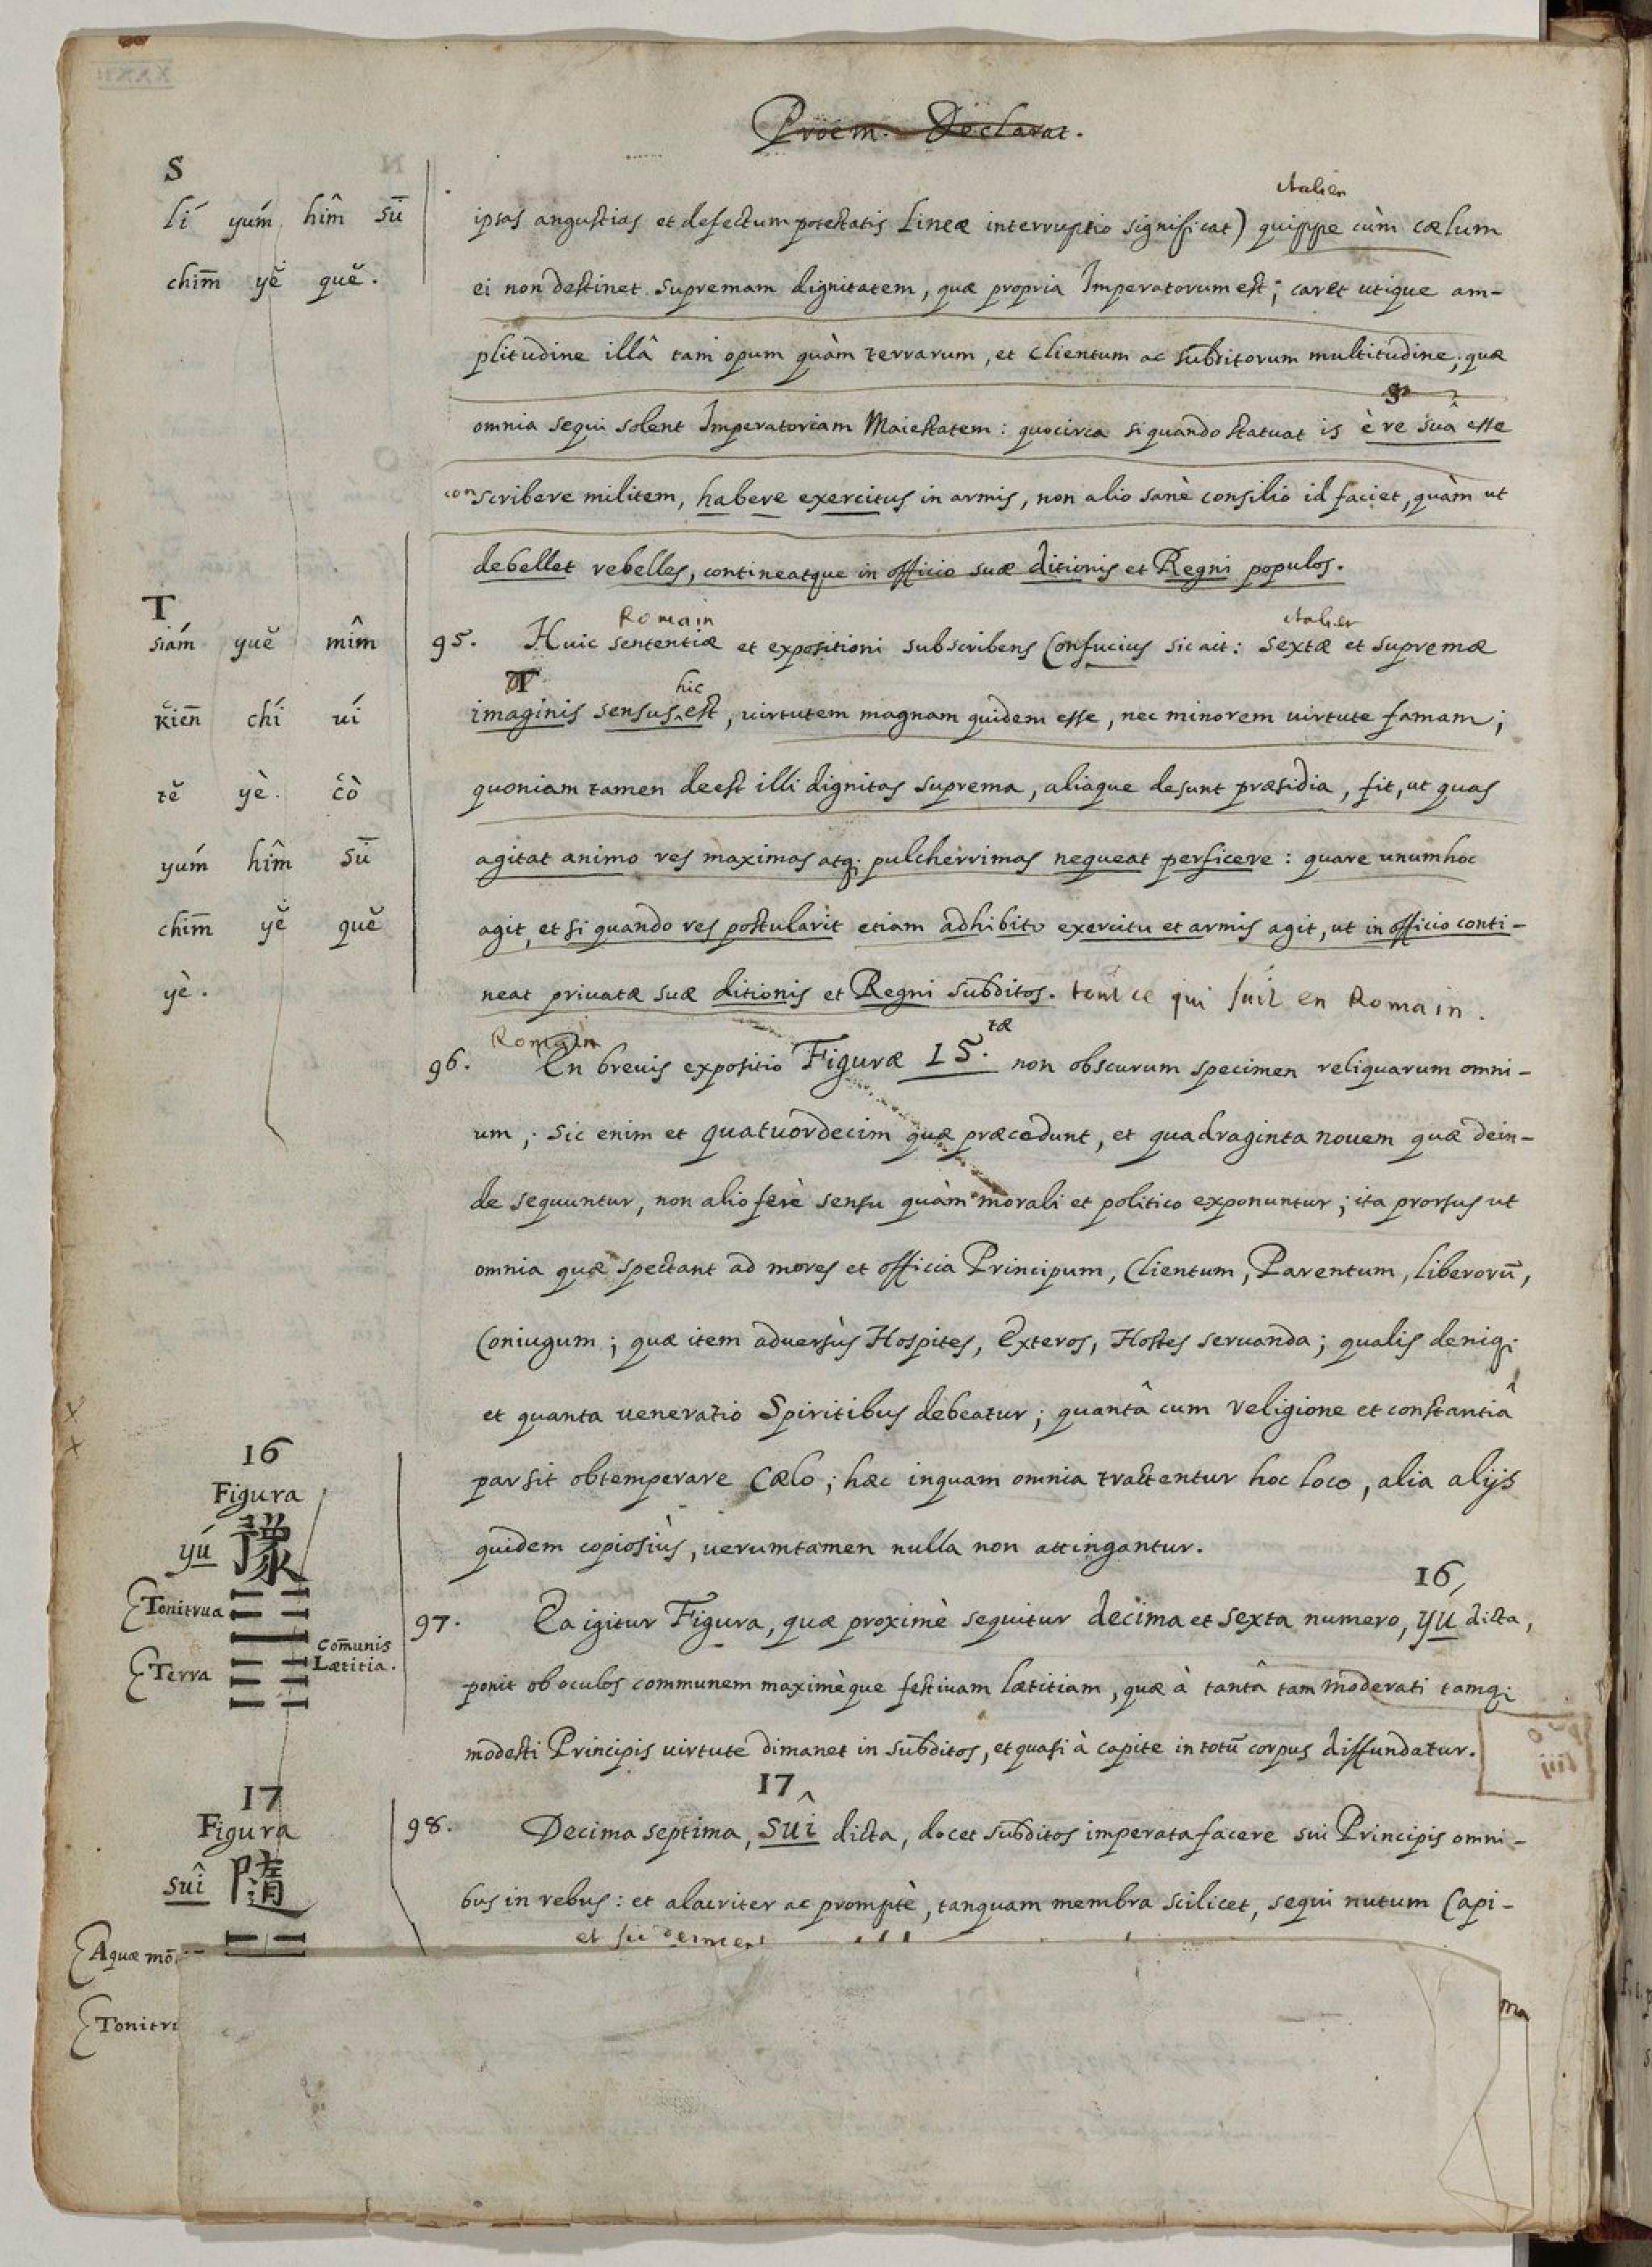 Proëm. Declarat.
S
lí yúm hîm sū
chīm yĕ quĕ.
Italien
ipsas angustias et defectum potestatis Lineæ interruptio significat) quippe cùm cælum
ei non destinet supremam dignitatem, quæ propria Imperatorum est; caret utique am-
plitudine illâ tam opum quàm terrarum, et Clientum ac subditorum multitudine; quæ
S
omnia sequi solent Imperatoriam Maiestatem: quocirca siquando statuat is è re suâ esse
conscribere militem, habere exercitus in armis, non alio sanè consilio id faciet, quàm ut
debellet rebelles, contineatque in officio suæ ditionis et Regni populos.
T
siám yuĕ mîm
κiēn chí uí
tĕ yè. cò
yúm hîm sū
chīm yĕ quĕ
yè.
Romain Italien
95. Huic sententiæ et expositioni subscribens Confucius sic ait: Sextæ et supremæ
T hic
imaginis sensus est, uirtutem magnam quidem esse, nec minorem uirtute famam;
quoniam tamen deest illi dignitas suprema, aliaque desunt præsidia, fit, ut quas
agitat animo res maximas atq; pulcherrimas nequeat perficere: quare unum hoc
agit, et si quando res postularit etiam adhibito exercitu et armis agit, ut in officio conti-
neat priuatæ suæ ditionis et Regni subditos. tout ce qui suit en Romain.
Romain
96. En breuis expositio Figuræ 15.tæ non obscurum specimen reliquarum omni-
um; sic enim et quatuordecim quæ præcedunt, et quadraginta nouem quæ dein-
de sequuntur, non alio ferè sensu quàm morali et politico exponuntur; ita prorsus ut
omnia quæ spectant ad mores et officia Principum, Clientum, Parentum, liberorū,
Coniugum; quæ item aduersùs Hospites, Exteros, Hostes seruanda; qualis deniq;
et quanta ueneratio Spiritibus debeatur; quantâ cum religione et constantiâ
par sit obtemperare Cælo; hæc inquam omnia tractentur hoc loco, alia alijs
quidem copiosiùs, uerumtamen nulla non attingantur.
16
Figura
yú 豫
Tonitrua
Com̄unis
Lætitia.
Terra
16
97. Ea igitur Figura, quæ proximè sequitur decima et sexta numero, yú dicta,
ponit ob oculos communem maximèque festiuam lætitiam, quæ à tantâ tam moderati tamq;
modesti Principis uirtute dimanet in subditos, et quasi à capite in totū corpus diffundatur.
17
Figura
suî 隨
Aquæ mō
Tonitr
17
98. Decima septima, suî dicta, docet subditos imperata facere sui Principis omni-
bus in rebus: et alacriter ac promptè, tanquam membra scilicet, sequi nutum Capi-